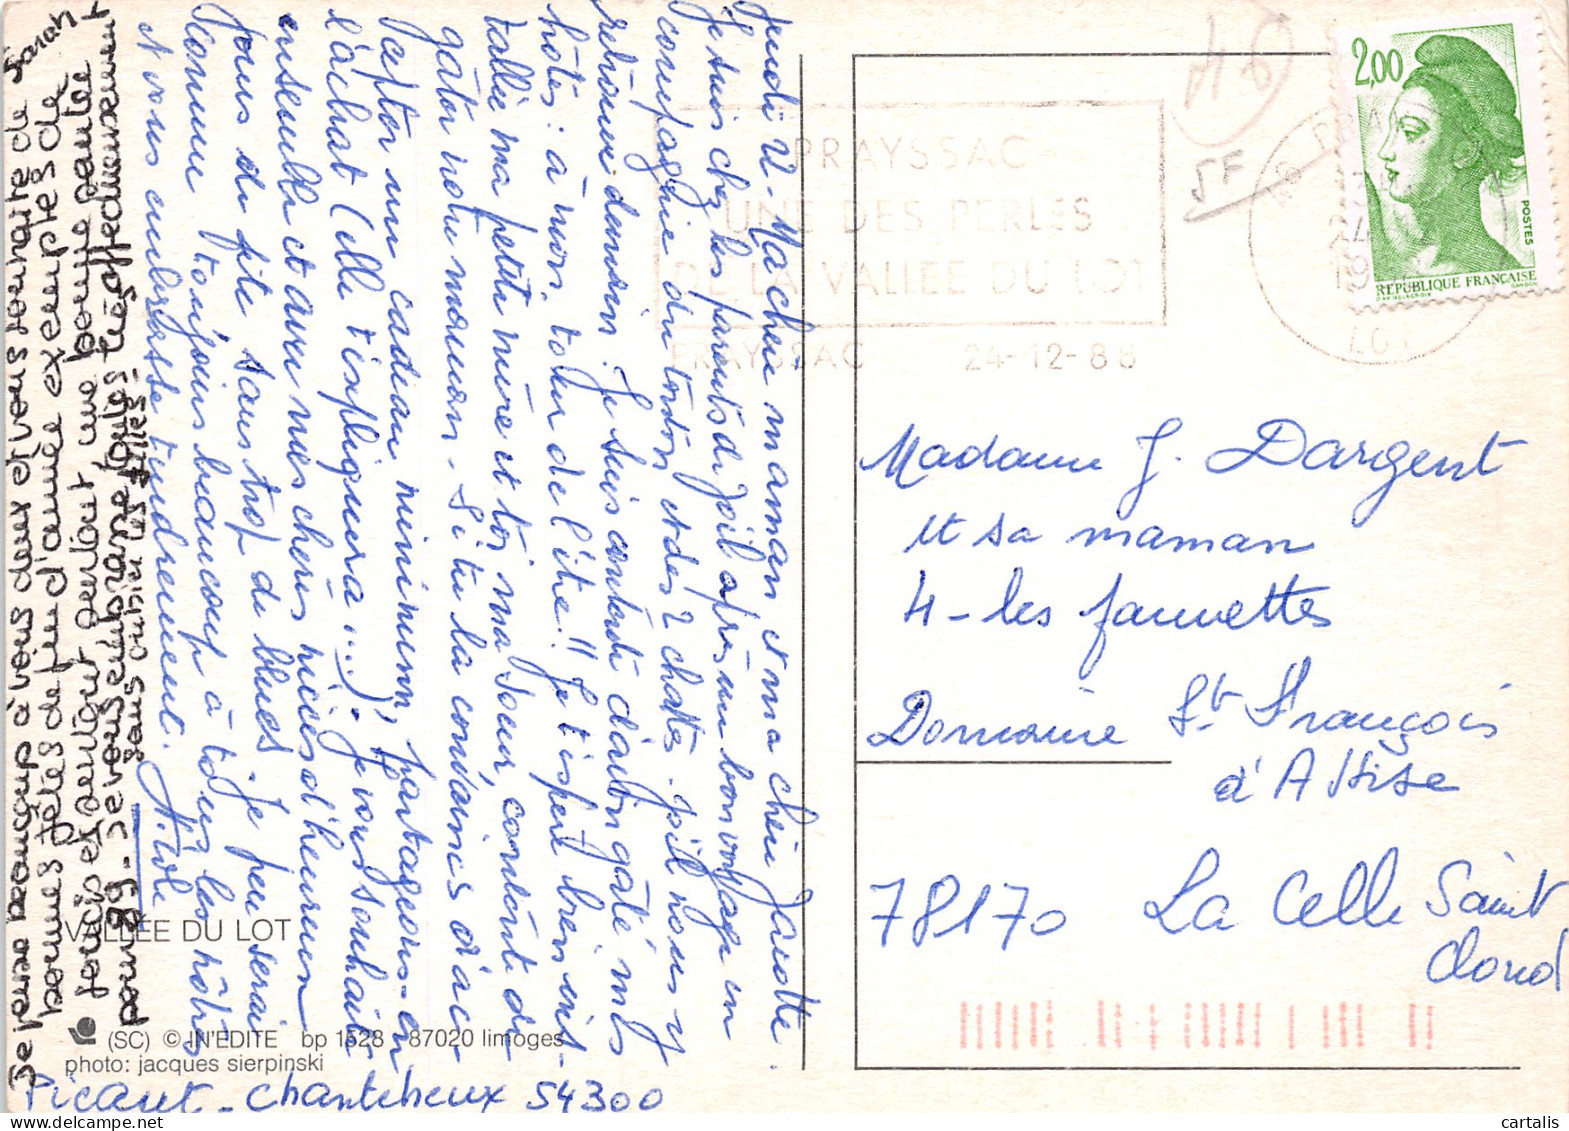 Jeudi 22 - Ma chère maman, et ma chère Jacotte
Je suis chez les parents de Joël après un bon voyage en
compagnie du tonton et des 2 chattes. Joël nous y
retrouve demain. Je suis contente d'avoir gâté mes
hôtes : à moi, tour de l'être !! J'espère bien ins-
taller ma petite mère et toi, ma soeur, contente de
gâter notre maman. Si tu la convaincs d'ac-
cepter un cadeau minimum, partageons-en
l'achat (elle t'expliquera...). Je vous souhaite
ensemble et avec mes chères nièces d'heureux
jours de fête sans trop de blues. Je penserai
comme toujours beaucoup à tous les nôtres
et vous embrasse tendrement. Nicole
Je pense beaucoup à vous deux et vous souhaite de
bonnes fêtes de fin d'année exemptes de
soucis et surtout une bonne santé
pour 89. Je vous embrasse toutes très affectueusement
sans oublier les filles - Sarah
VALLÉE DU LOT
(SC) © IN'EDITE bp 1528 87020 limoges
photo: jacques sierpinski
Picaret - Chanteheux 54300
46
5F
PRAYSSAC
UNE DES PERLES
DE LA VALLEE DU LOT
PRAYSSAC 24-12-88
LOT
2,00
POSTES
RÉPUBLIQUE FRANÇAISE
Madame J. Dargent
et sa maman
4 - les fauvettes
Domaine St François
d'Assise
78170 La Celle Saint
Cloud
cartalis